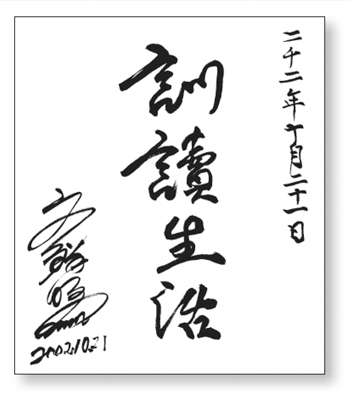 二千二年十月二十一日
訓讀生活
文鮮明
2002.10.21